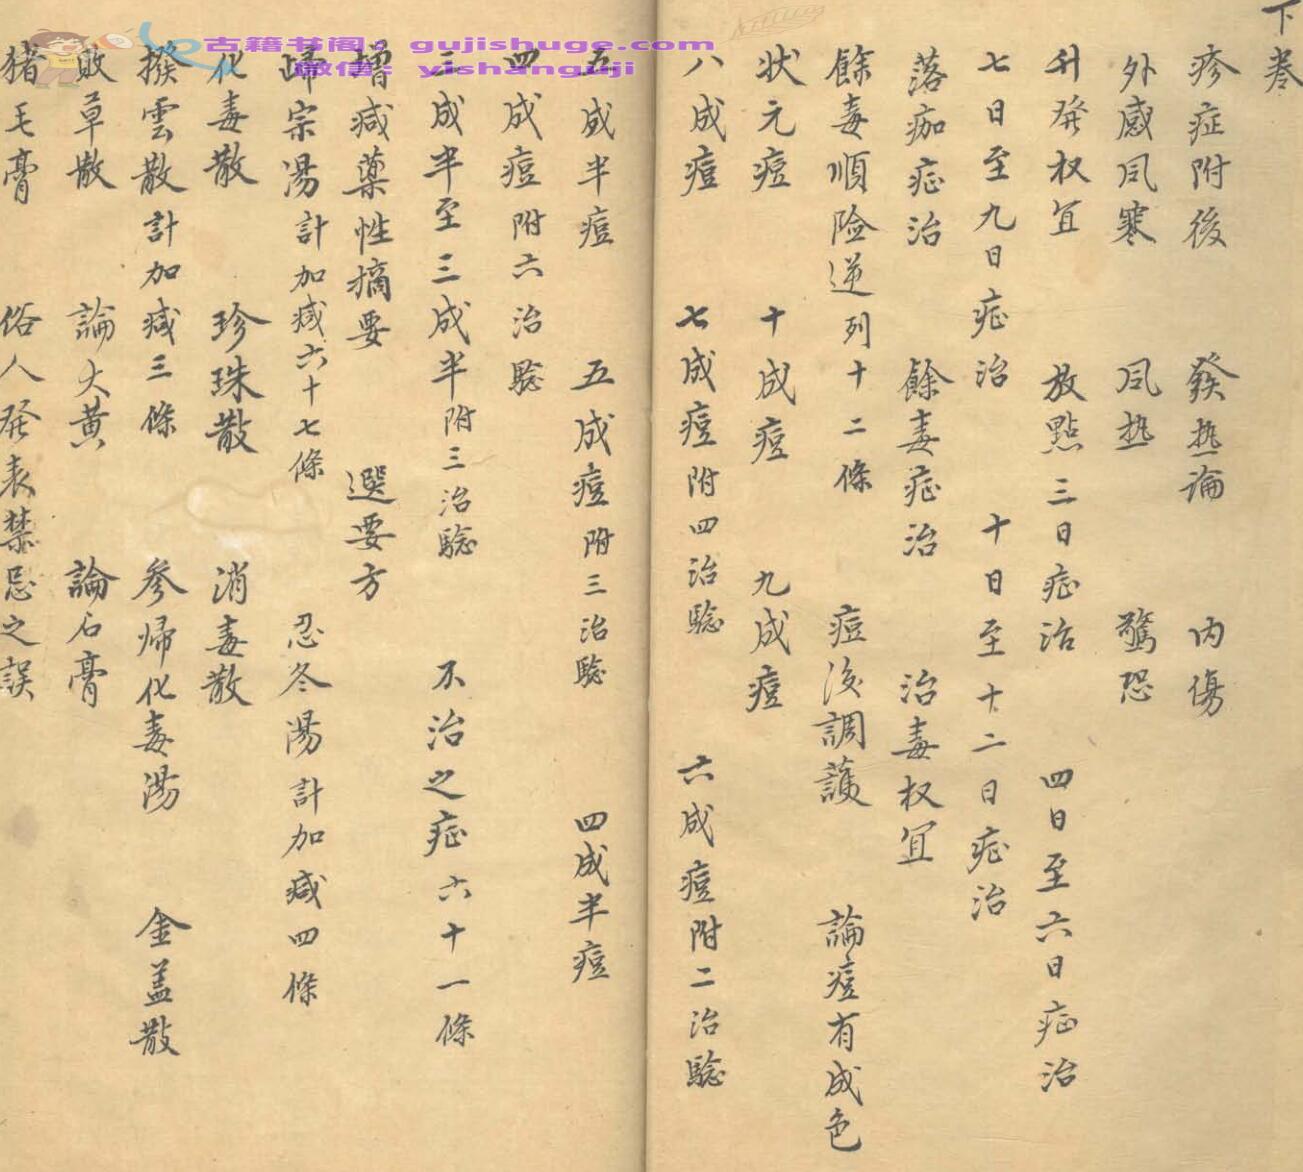 下卷
疹症附後 發热論 内傷
外感風寒 風热 驚恐
升發权宜 放點三日症治 四日至六日症治
七日至九日症治 十日至十二日症治
落痂症治 餘毒症治 治毒权宜
餘毒順險逆列十二條 痘後調護 論痘有成色
状元痘 十成痘 九成痘
八成痘 七成痘附四治驗 六成痘附二治驗
五成半痘 五成痘附三治驗 四成半痘
四成痘附六治驗
三成半至三成半附三治驗 不治之症六十一條
增减藥性摘要 選要方
歸宗湯計加减六十七條 忍冬湯計加减四條
化毒散 珍珠散 消毒散
撥雲散計加减三條 參歸化毒湯 金盖散
敗草散 論大黄 論石膏
猪毛膏 俗人發表禁忌之誤
古籍书阁：gujishuge.com
微信：yishanguji